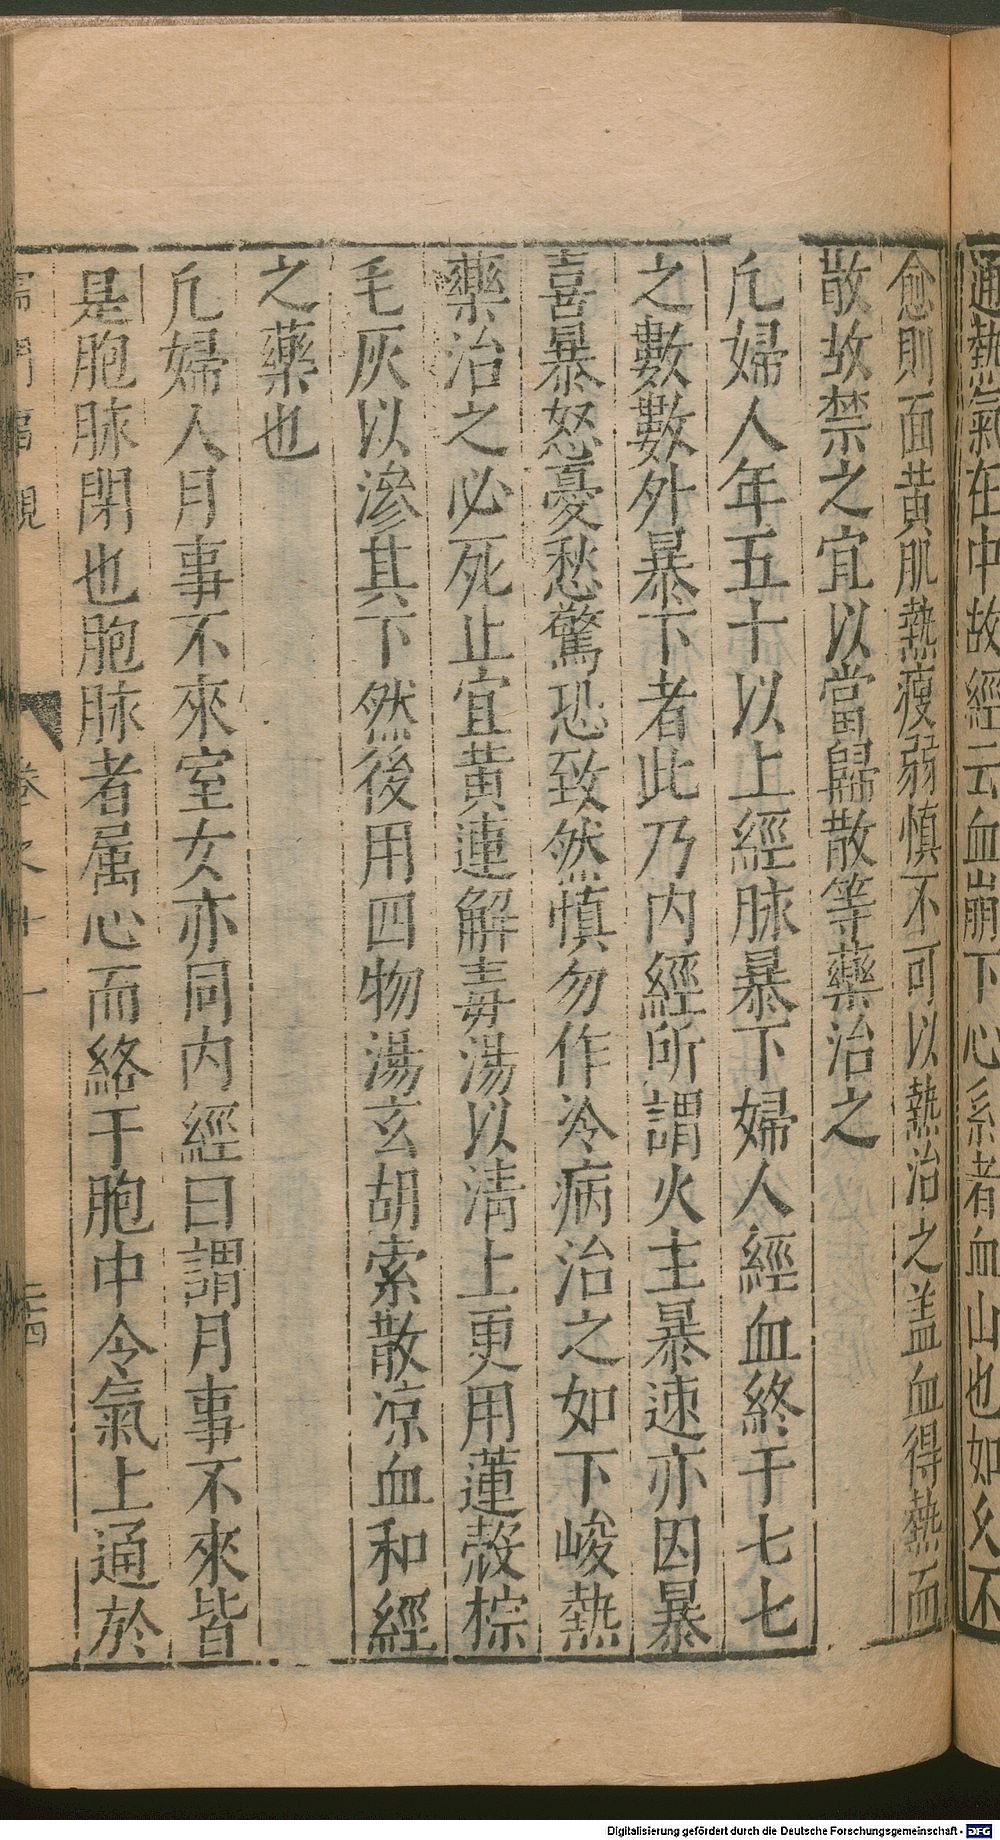 通熱氣在中故經云血崩下心系者血山也如久不
愈則面黄肌熱瘦弱慎不可以熱治之盖血得熱而
散故禁之宜以當歸散等藥治之
凢婦人年五十以上經脉暴下婦人經血終于七七
之數數外暴下者此乃内經所謂火主暴速亦因暴
喜暴怒憂愁驚恐致然慎勿作冷病治之如下峻熱
藥治之必死止宜黄連解毒湯以清上更用蓮殻棕
毛灰以滲其下然後用四物湯玄胡索散凉血和經
之藥也
凢婦人月事不來室女亦同内經曰謂月事不來皆
是胞脉閉也胞脉者属心而絡于胞中令氣上通於
儒門事親 卷之十一 二十四
Digitalisierung gefördert durch die Deutsche Forschungsgemeinschaft - DFG